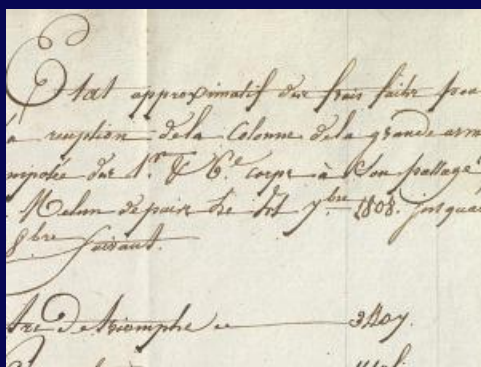 Etat approximatif des frais faits pou
a reception de la Colonne de la grande arm
mposée des 1.er & 6.e corps à Son passage
Melun depuis le 7bre 1808. jusqu'a
8bre suivant.
Arc De triomphe